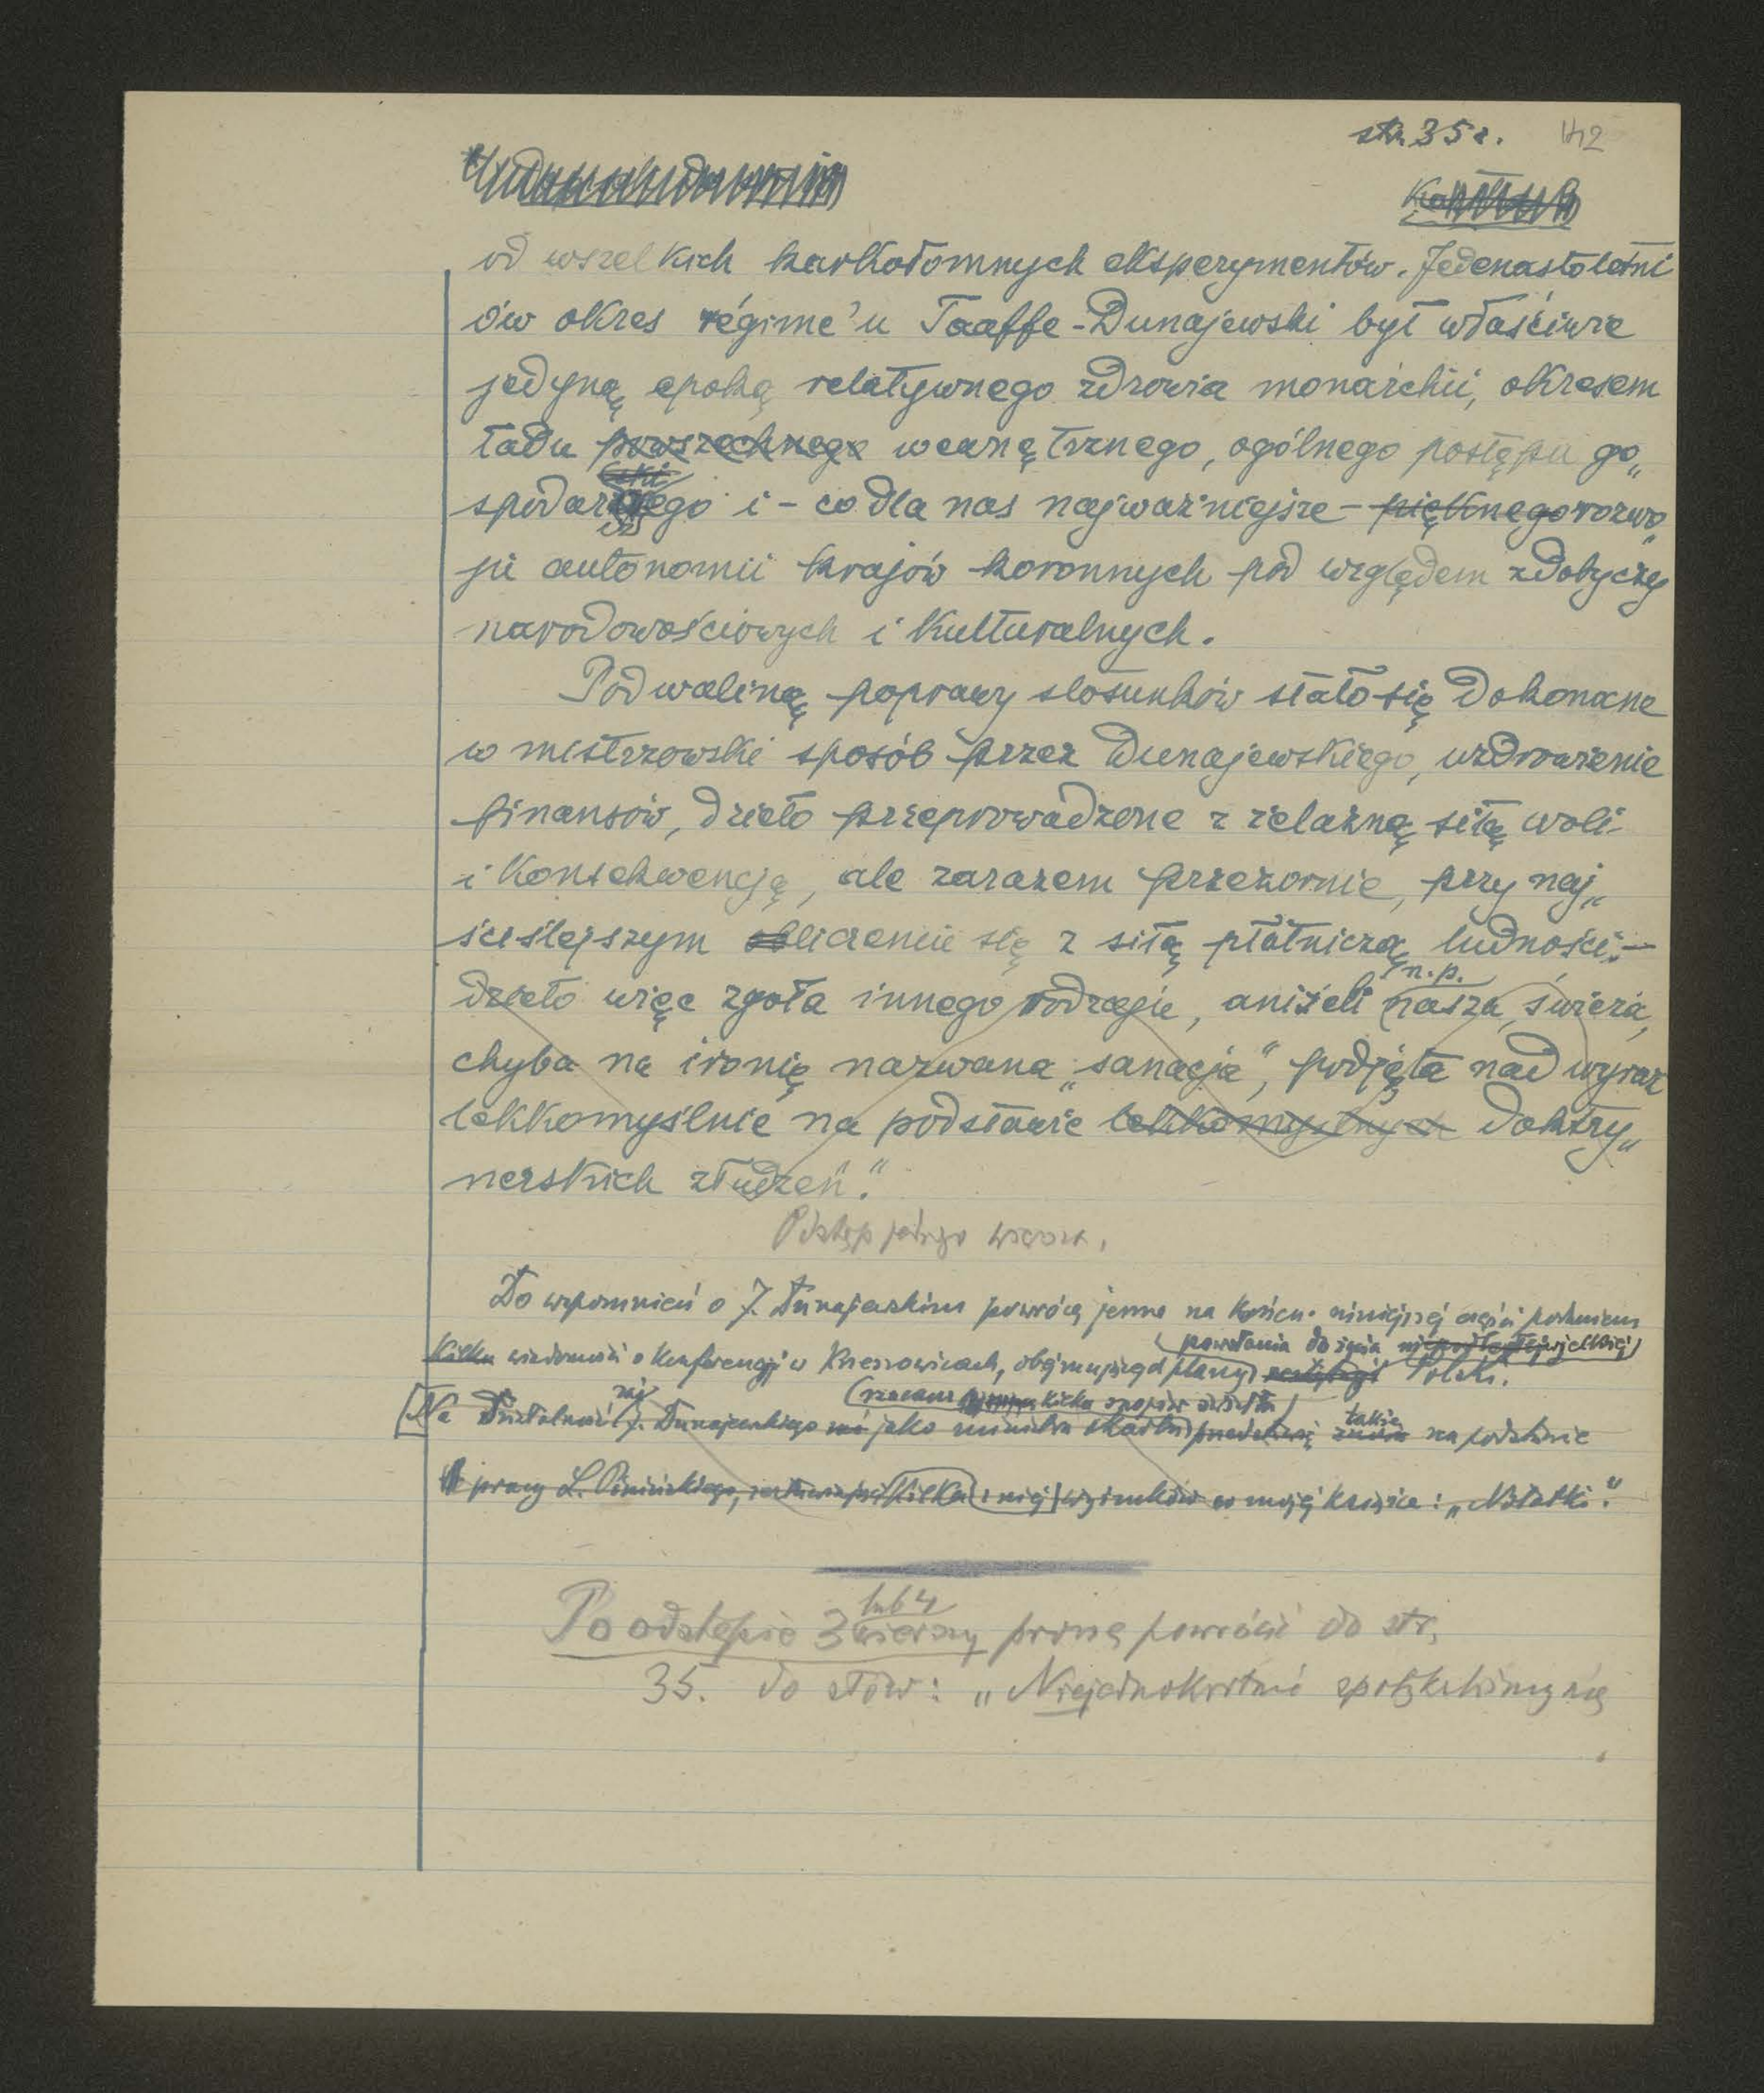 str. 35 z. 142
od wszelkich karkołomnych eksperymentów. Jedenastoletni
ów okres régime'u Taaffe-Dunajewski był właściwie
jedyną epoką relatywnego zdrowia monarchii, okresem
ładu powszechnego wewnętrznego, ogólnego postępu go„
spodarczego i - co dla nas najważniejsze - pięknego rozwo„
ju autonomii krajów koronnych pod względem zdobyczy
narodowościowych i kulturalnych.
Podwaliną poprawy stosunków stało się dokonane
w mistrzowski sposób przez Dunajewskiego, uzdrowienie
finansów, dzieło przeprowadzone z żelazną siłą woli
i konsekwencją, ale zarazem przezornie, przy naj„
ściślejszym liczeniu się z siłą płatniczą ludności. -
n.p.
dzieło więc zgoła innego rodzaju, aniżeli nasza świeża,
chyba na ironię nazwana „sanacja", podjęta nad wyraz
lekkomyślnie na podstawie lekkomyślnych doktry„
nerskich złudzeń."
Odstęp jednego wiersza.
Do wspomnień o J. Dunajewskim powrócę jeszcze na końcu niniejszej części
powołania do życia
kilku wiadomości o konferencji w Krzeszowicach, obejmującej plany Polski.
kilka snopów światła
także
Na działalność J. Dunajewskiego jako ministra skarbu na podstawie
pracy L. Pinińskiego, kilku z niej wyimków w mojej książce: „Notatki".
lub 4
Po odstępie 3 wierszy proszę powrócić do str.
35. do słów: „Niejednokrotnie spotykaliśmy się